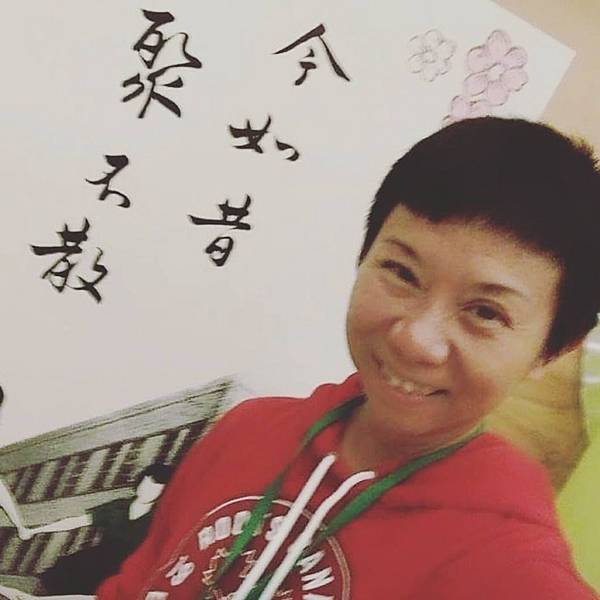 今如昔
聚不散
ROOTS